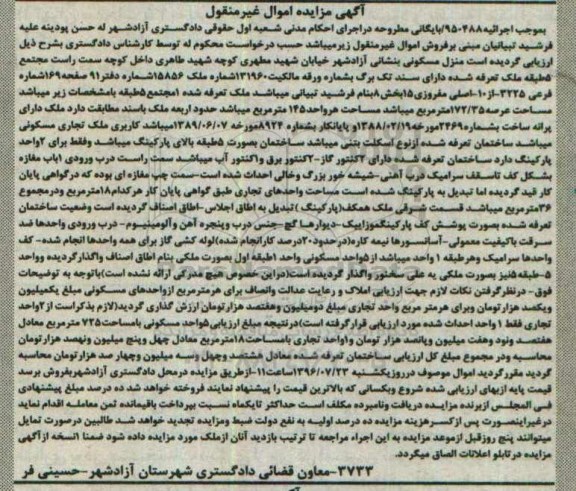 آگهی مزایده اموال غیرمنقول
بموجب اجرائیه ۹۵۰۴۸۸/بایگانی مطروحه دراجرای احکام مدنی شعبه اول حقوقی دادگستری آزادشهر له حسن پودینه علیه
فرشید تبیانیان مبنی برفروش اموال غیرمنقول زیرمیباشد حسب درخواست محکوم له توسط کارشناس دادگستری بشرح ذیل
ارزیابی گردیده است منزل مسکونی بنشانی آزادشهر خیابان شهید مطهری کوچه شهید طاهری داخل کوچه سمت راست مجتمع
۵طبقه ملک تعرفه شده دارای سند تک برگ بشماره ورقه مالکیت-۱۳۱۹۶۰شماره ملک ۱۵۸۵۶شماره دفتر۹۱ صفحه۱۶۹شماره
فرعی ۳۲۲۵-از۱۰-اصلی مفروزی۱۵بخش۸بنام فرشید تبیانی میباشد ملک تعرفه شده ۱مجتمع۵طبقه بامشخصات زیر میباشد
مساحت عرصه۱۷۲/۳۵مترمربع میباشد مساحت هرواحد۱۴۵ مترمربع میباشد حدود اربعه ملک باسند مطابقت دارد ملک دارای
پرانه ساخت بشماره۲۴۶۹مورخه۱۳۸۸/۰۲/۱۹و پایانکار بشماره ۸۹۲۴مورخه ۱۳۸۹/۰۶/۰۷میباشد کاربری ملک تجاری مسکونی
میباشد ساختمان تعرفه شده ازنوع اسکلت بتنی میباشد ساختمان بصورت ۵طبقه بالای پارکینگ میباشد وفقط برای ۲واحد
پارکینگ دارد ساختمان تعرفه شده دارای ۲کنتور گاز-۲کنتور برق و۱کنتور آب میباشد سمت راست درب ورودی ۱باب مغازه
بشکل کف تاسقف سرامیک درب آهنی-شیشه خور بزرگ وخالی احداث شده است-سمت چپ مغازه ای بوده که درگواهی پایان
کار قید گردیده اما تبدیل به پارکینگ شده است مساحت واحدهای تجاری طبق گواهی پایان کار هرکدام۱۸مترمربع ودرمجموع
۳۶مترمربع میباشد قسمت شرقی ملک همکف(پارکینگ)تبدیل به اطاق اجلاس-اطاق اصناف گردیده است وضعیت ساختمان
تعرفه شده بصورت پوشش کف پارکینگ موزاییک-دیوارها گچ-جنس درب وپنجره آهن وآلومینیوم-درب ورودی واحدها ضد
سرقت باکیفیت معمولی-آسانسورها نیمه کاره(درحدود۲۰درصد کارانجام شده)لوله کشی گاز برای همه واحدها انجام شده-کف
واحدها سرامیک وهرطبقه ۱ واحد میباشد از۵واحد مسکونی واحد ۱طبقه اول بصورت ملکی بنام اطاق اصناف واگذارگردیده وواحد
۵-طبقه۵نیز بصورت ملکی به علی سختور واگذار گردیده است(دراین خصوص هیچ مدرکی ارائه نشده است)باتوجه به توضیحات
فوق-درنظرگرفتن نکات لازم جهت ارزیابی املاک و رعایت عدالت وانصاف برای هرمترمربع ازواحدهای مسکونی مبلغ یکمیلیون
ویکصد هزارتومان وبرای هرمتر مربع واحد تجاری مبلغ دومیلیون وهفتصد هزارتومان ارزش گذاری گردید(لازم بذکراست از۲واحد
تجاری فقط ۱ واحد احداث شده مورد ارزیابی قرارگرفته است)درنتیجه مبلغ ارزیابی۵واحد مسکونی بامساحت۷۲۵ مترمربع معادل
هفتصد ونود وهفت میلیون وپانصد هزار تومان و۱واحد تجاری بامساحت۱۸مترمربع معادل چهل وپنج میلیون ونهصد هزارتومان
محاسبه ودر مجموع مبلغ کل ارزیابی ساختمان تعرفه شده معادل هشتصد وچهل وسه میلیون وچهار صد هزارتومان محاسبه
گردید مقررگردید اموال موصوف درروزیکشنبه ۱۳۹۶/۰۷/۲۳ساعت۱۱-ازطریق مزایده درمحل دادگستری آزادشهربفروش برسد
قیمت پایه ازبهای ارزیابی شده شروع وبکسانی که بالاترین قیمت را پیشنهاد نمایند فروخته خواهد شد ده درصد مبلغ پیشنهادی
فی المجلس ازبرنده مزایده دریافت ونامبرده مکلف است حداکثر تایکماه نسبت بپرداخت باقیمانده ثمن معامله اقدام نماید
درغیراینصورت پس ازکسرهزینه مزایده ده درصد اولیه به نفع دولت ضبط ومزایده تجدید خواهد شد طالبین درصورت تمایل
میتوانند پنج روزقبل ازموعد مزایده به این اجراء مراجعه تا ترتیب بازدید آنان ازملک مورد مزایده داده شود ضمنا ۱نسخه ازآگهی
مزایده درتابلو اعلانات الصاق میگردد.
۳۷۳۳-معاون قضائی دادگستری شهرستان آزادشهر-حسینی فر